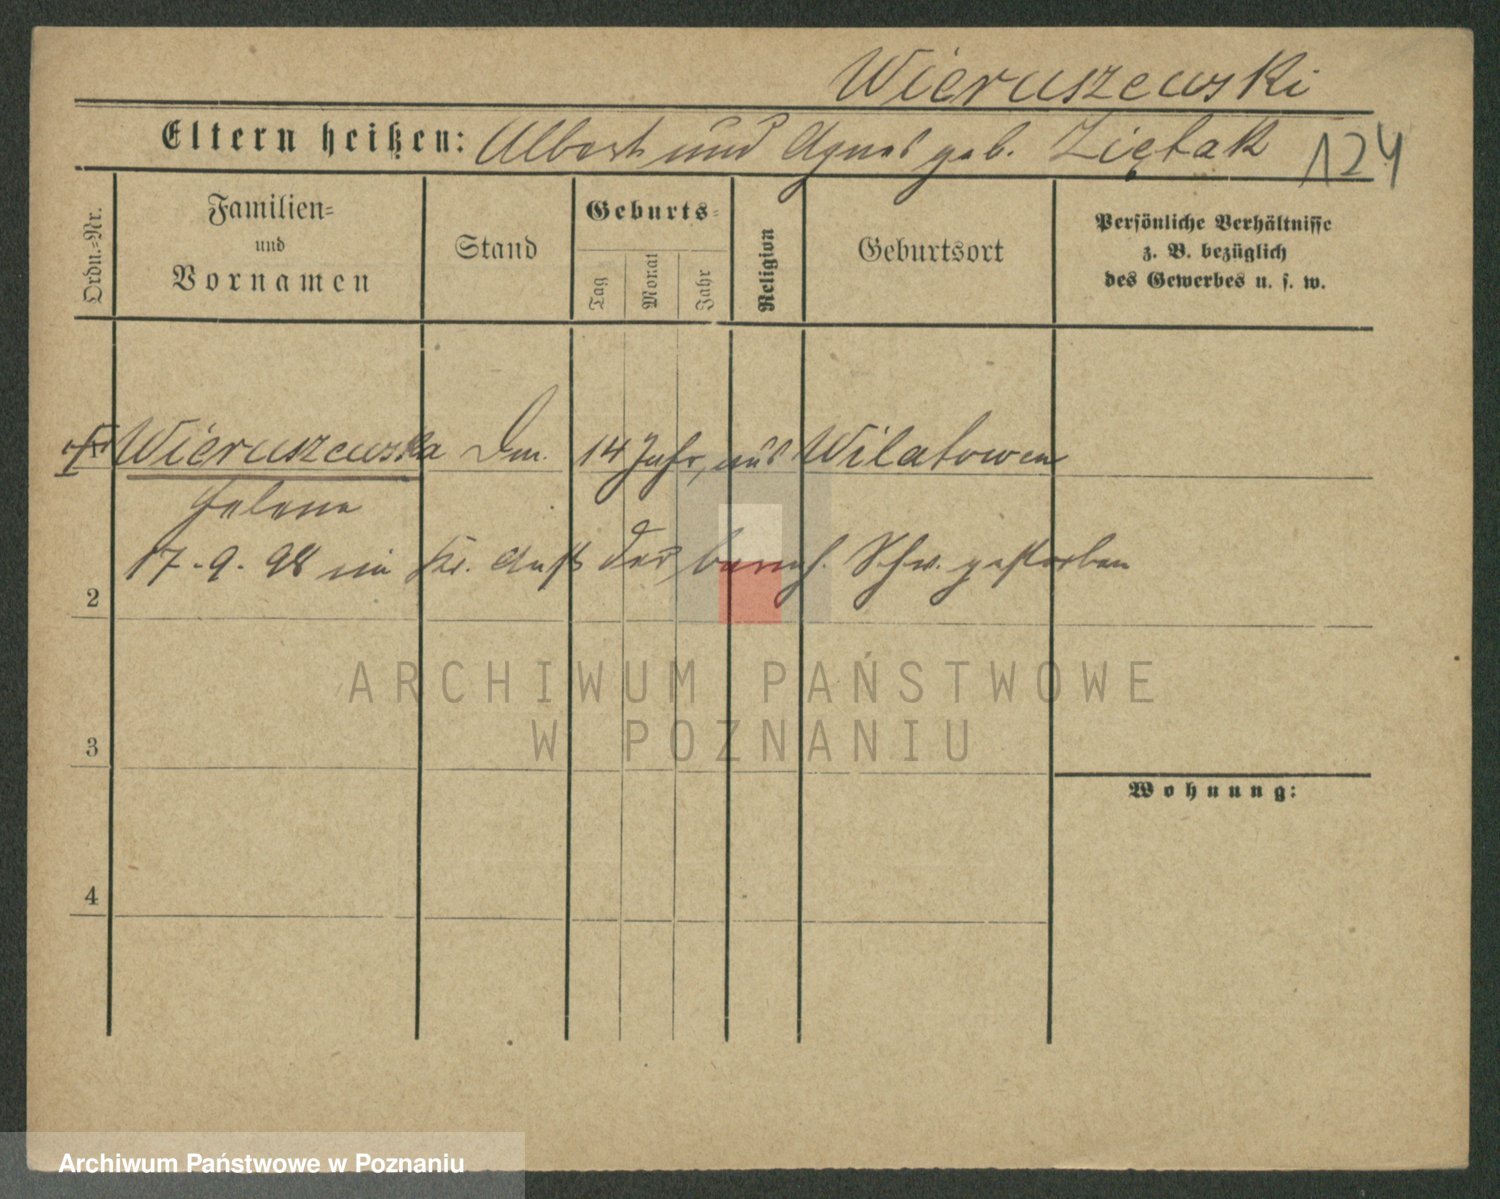 Wieruszewski
Eltern heißen: Albert und Agnes geb. Ziętak 124
Ordn.-Nr.
Familien-
und
Vornamen
Stand
Geburts-
Tag
Monat
Jahr
Religion
Geburtsort
Persönliche Verhältnisse
z. B. bezüglich
des Gewerbes u. s. w.
Wieruszewska Dm. 14 Jahr, aus Wilatowen
Helene
17.9.98 im Kr. Anst der barmh. Schw. gestorben
2
3
4
Wohnung:
ARCHIWUM PAŃSTWOWE
W POZNANIU
Archiwum Państwowe w Poznaniu